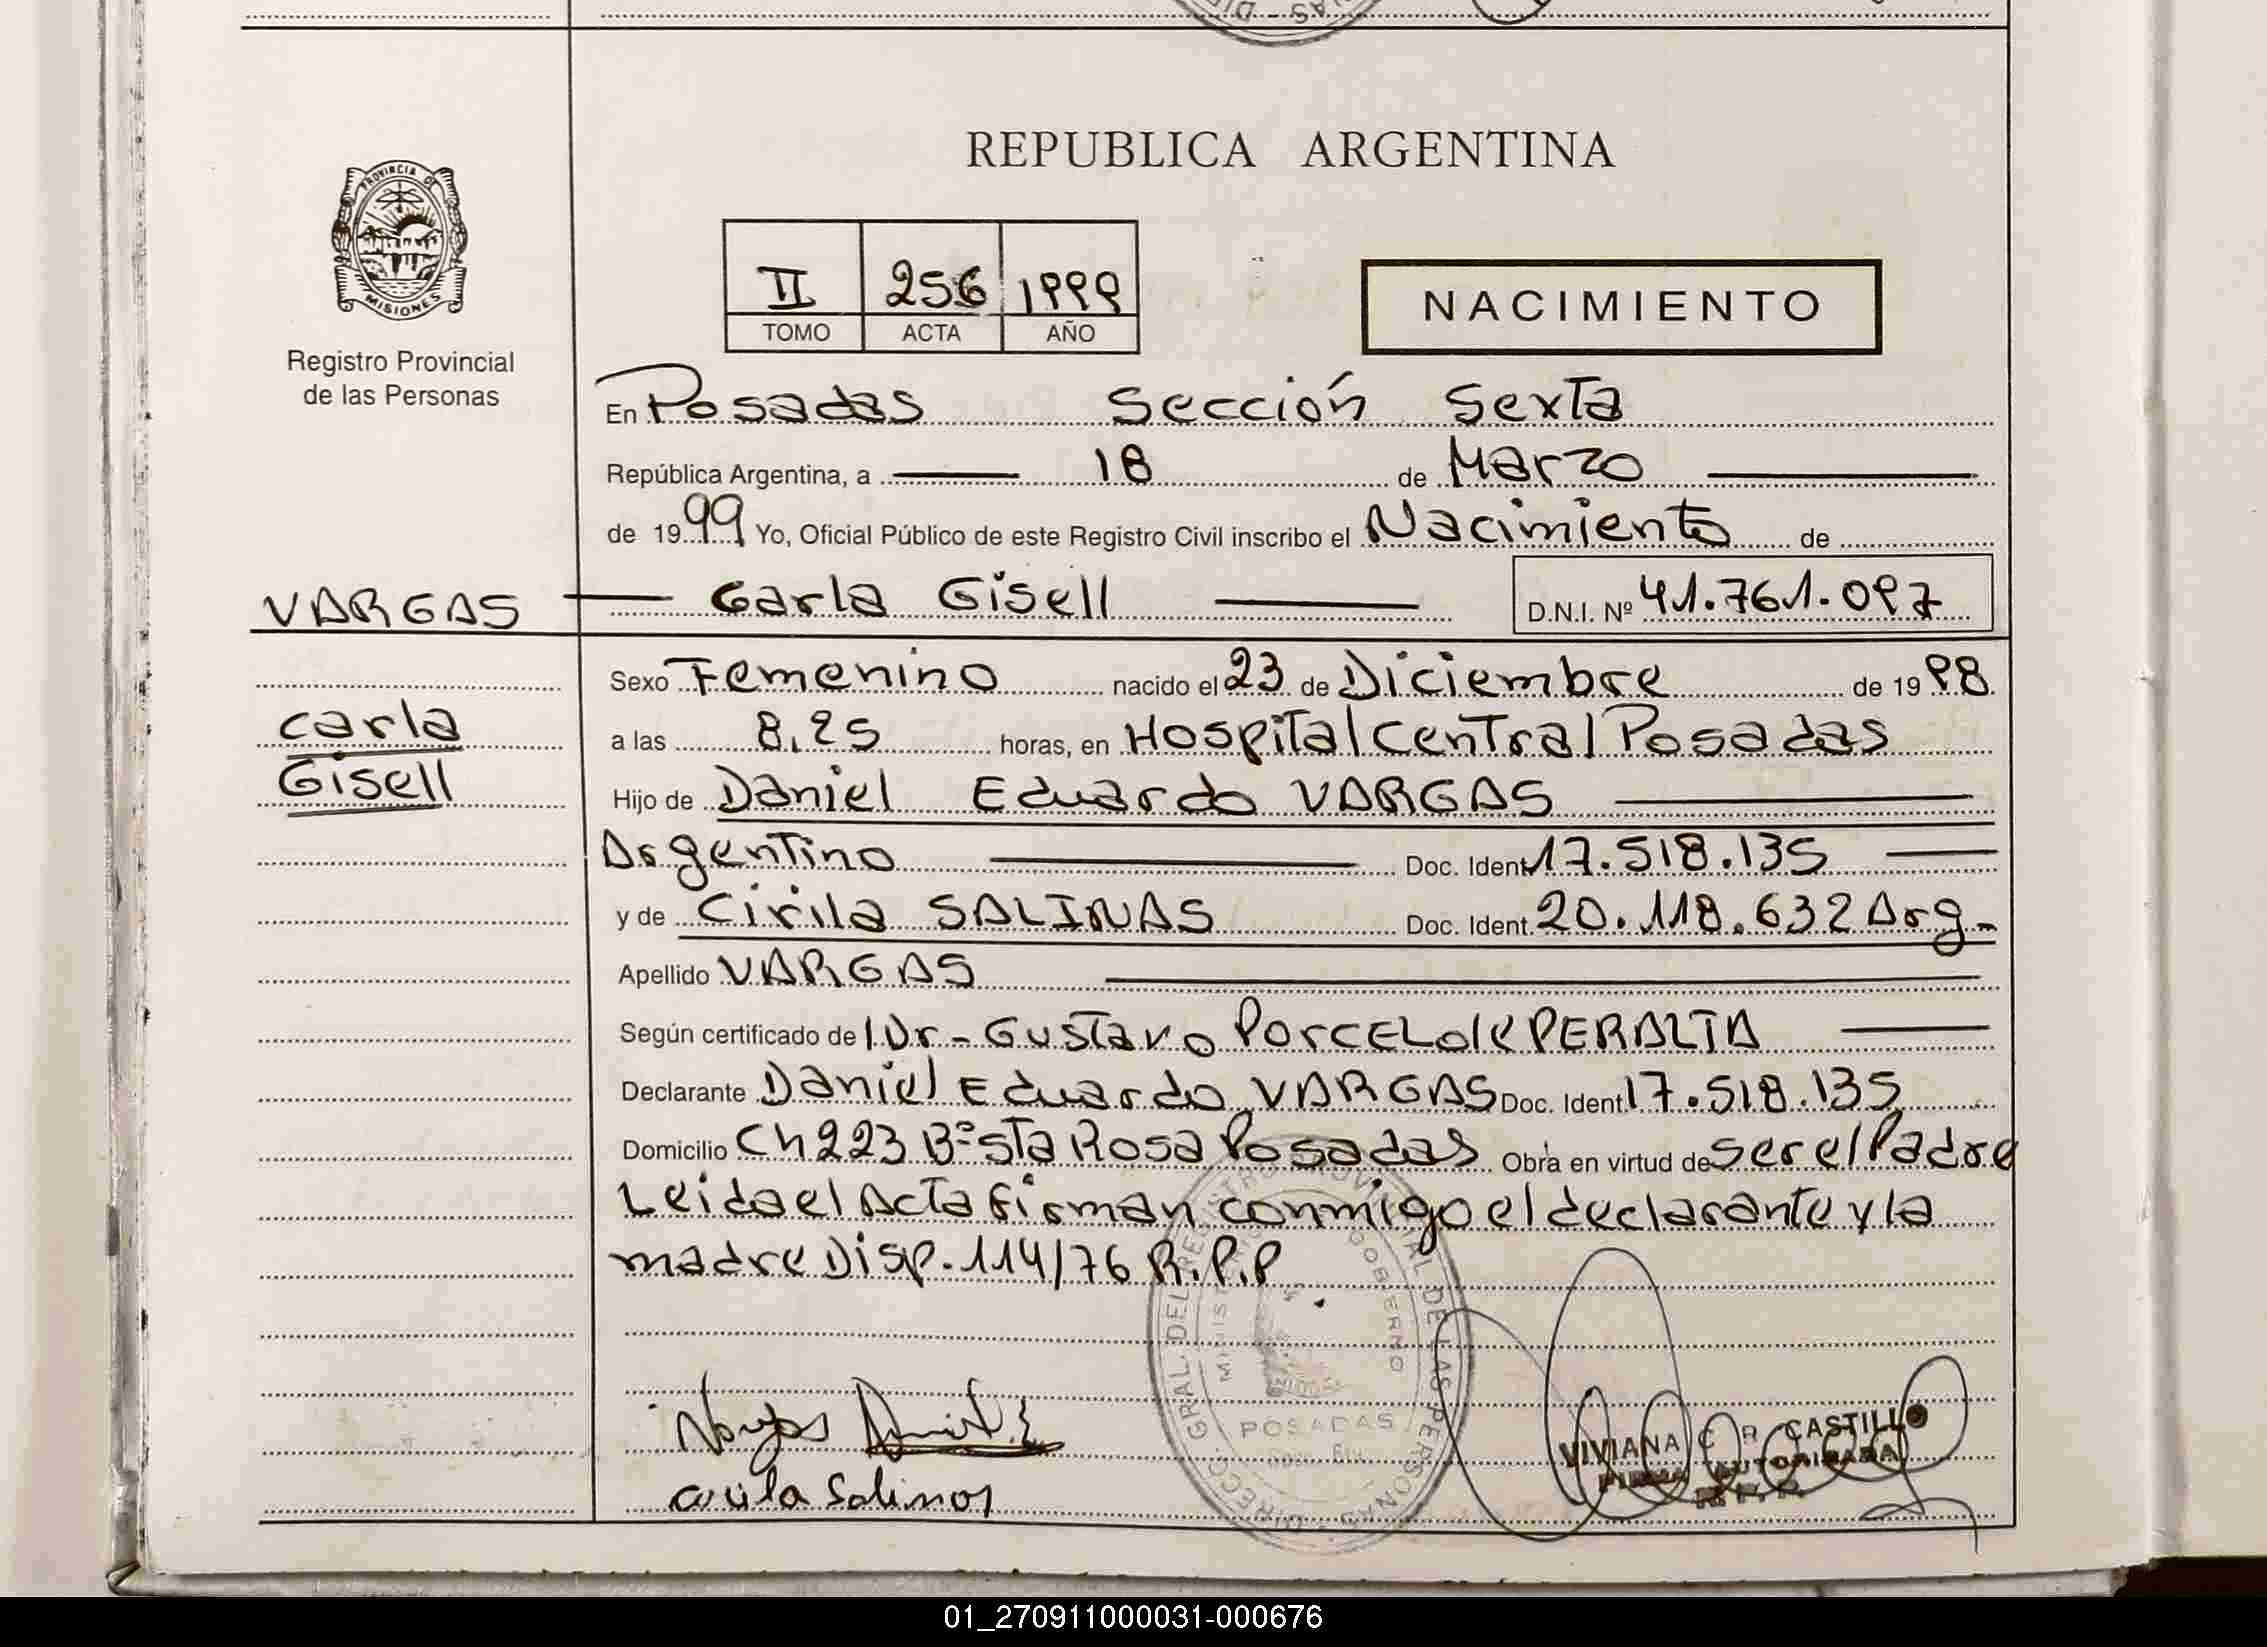 REPUBLICA ARGENTINA
PROVINCIA DE
MISIONES
Registro Provincial
de las Personas
II 256 1999
TOMO ACTA AÑO
NACIMIENTO
En Posadas Sección Sexta
República Argentina, a 18 de Marzo
de 1999 Yo, Oficial Público de este Registro Civil inscribo el Nacimiento de
VARGAS Carla Gisell D.N.I. Nº 41.761.097
Sexo Femenino nacido el 23 de Diciembre de 1998
Carla
Gisell
a las 8,25 horas, en Hospital Central Posadas
Hijo de Daniel Eduardo VARGAS
Argentino Doc. Ident. 17.518.135
y de Cirila SALINAS Doc. Ident. 20.118.632 Arg-
Apellido VARGAS
Según certificado de l Dr- Gustavo PERALTA
Declarante Daniel Eduardo VARGAS Doc. Ident. 17.518.135
Domicilio Ch 223 Bº Sta Rosa Posadas Obra en virtud de ser el Padre
Leida el Acta firman conmigo el declarante y la
madre Disp. 114/76 R.P.P
DIRECC. GRAL. DEL REGISTRO PROVINCIAL DE LAS PERSONAS
MINISTERIO GOBIERNO
POSADAS
Vargas Daniel E
Cirila Salinas
VIVIANA C R CASTILLO
FIRMA AUTORIZADA
01_270911000031-000676